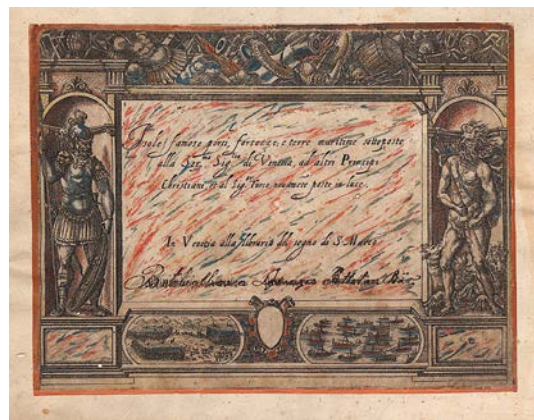 Isole famose porti, fortezze, e terre maritime sottoposte
alla Ser.ma Sig.ria di Venetia, ad altri Principi
Christiani, et al Sig.or Turco, novamente poste in luce.
In Venetia alla libraria del segno di S. Marco